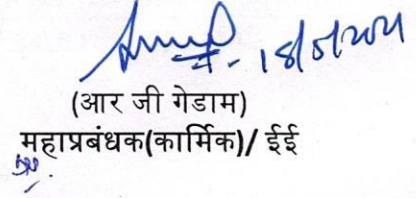 18/5/2021
(आर जी गेडाम)
महाप्रबंधक(कार्मिक)/ ईई